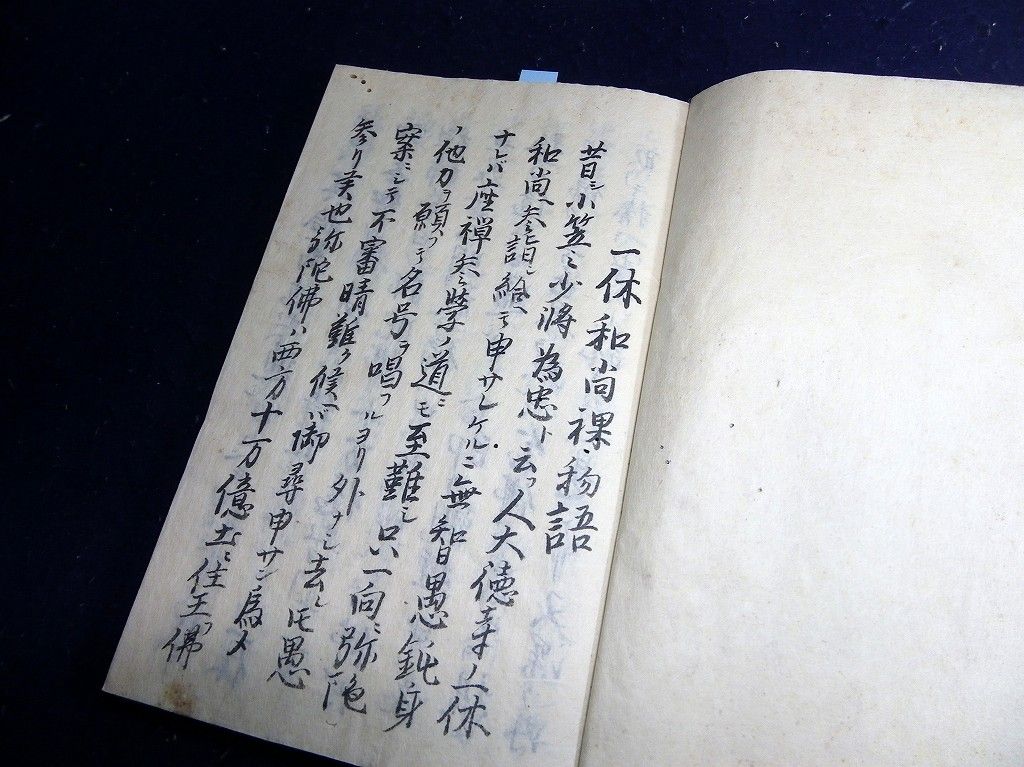 一休和尚裸物語
昔シ小笠ミ少将為忠ト云フ人大徳寺ノ一休
和尚ヘ参詣シ給ヘテ申サレケルニ無智愚鈍身
ナレバ座禅参学ノ道ニモ至難シ只一向ニ弥陀
ノ他力ヲ頼フテ名号ヲ唱フルヨリ外ナシ去レ𪜈愚
案ニシテ不審晴難ク候ヘバ御尋申サン為メ
参リ 也弥陀佛ハ西方十万億土ニ住玉フ佛